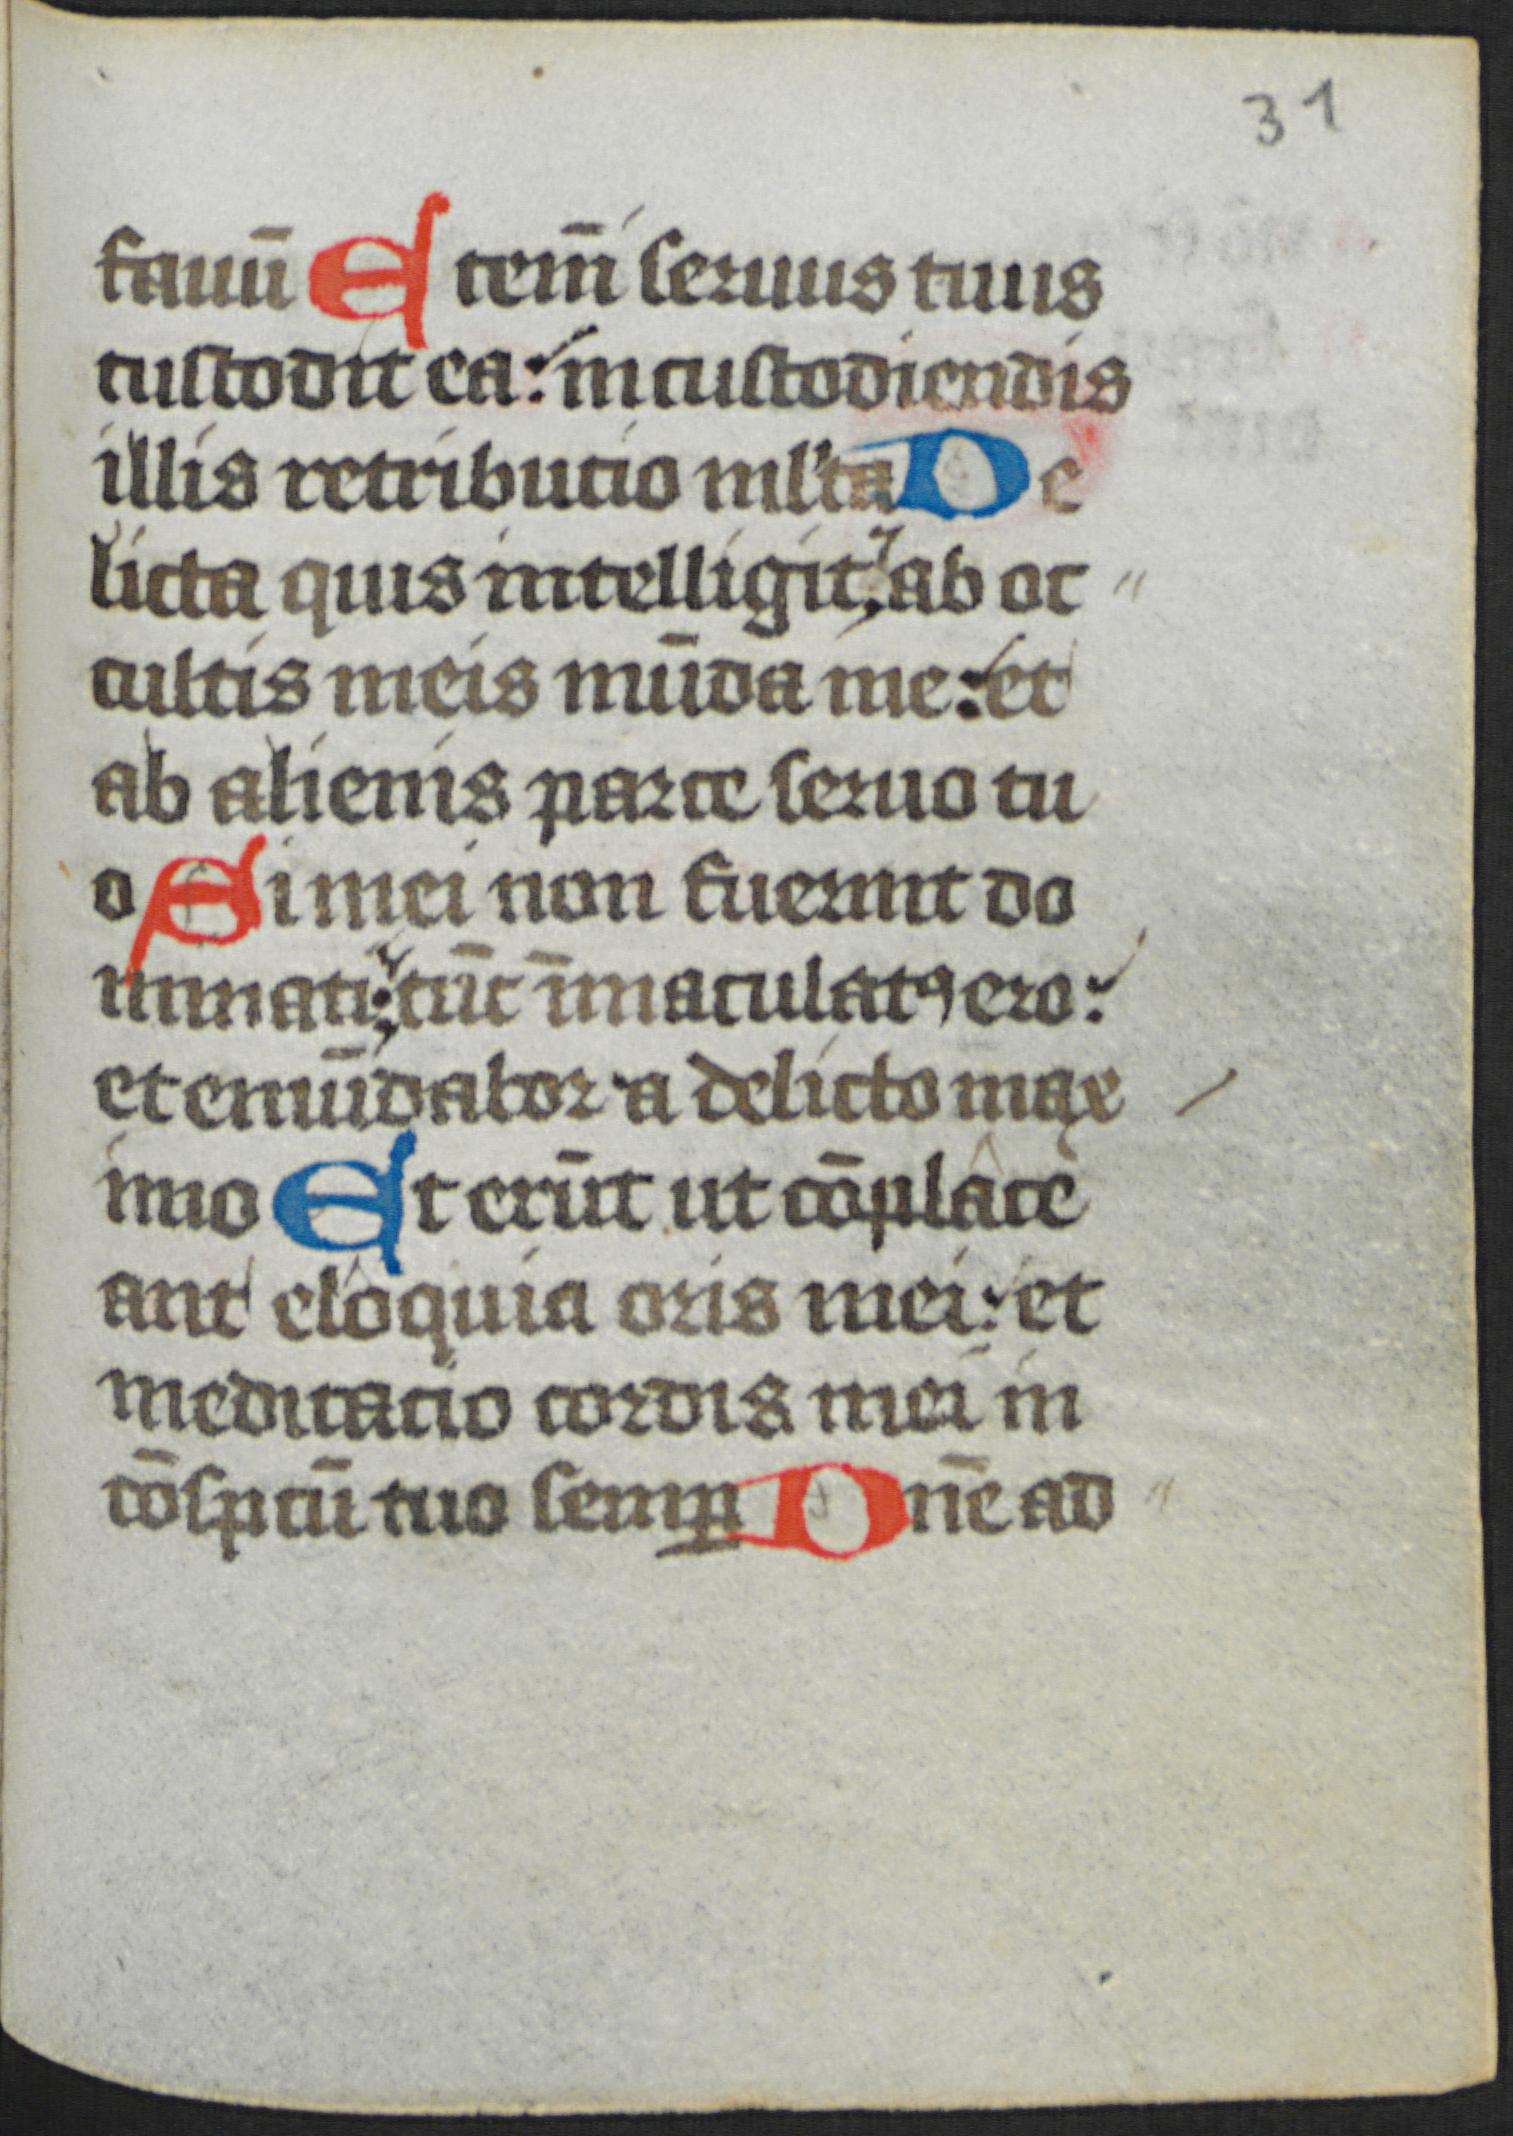 31
fauū Etem̄ seruus tuus
custodit ea: in custodiendis
illis retributio ml'ta De
licta quis intelligit, ab oc
cultis meis mūda me: et
ab alienis parce seruo tu
o Si mei non fuerint do
minati: tūc īmaculatꝰ ero:
et emūdabor a delicto max
imo Et erūt ut cōplace
ant eloquia oris mei: et
meditacio cordis mei in
cōsp̄ctū tuo semꝑ Dn̄e ad